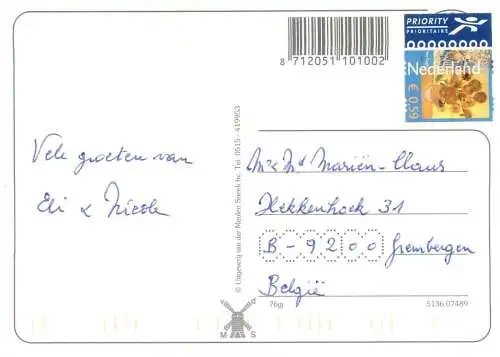 PRIORITY
PRIORITAIRE
Nederland
€ 0,59
8 712051 101002
Vele groeten van
Eli & Nicole
© Uitgeverij van der Meulen Sneek bv. Tel. 0515 - 419953
Mr & Md Mariën-Claus
Hekkenhoek 31
B - 9200 Grembergen
België
76gj
5136 07489
v d
M S